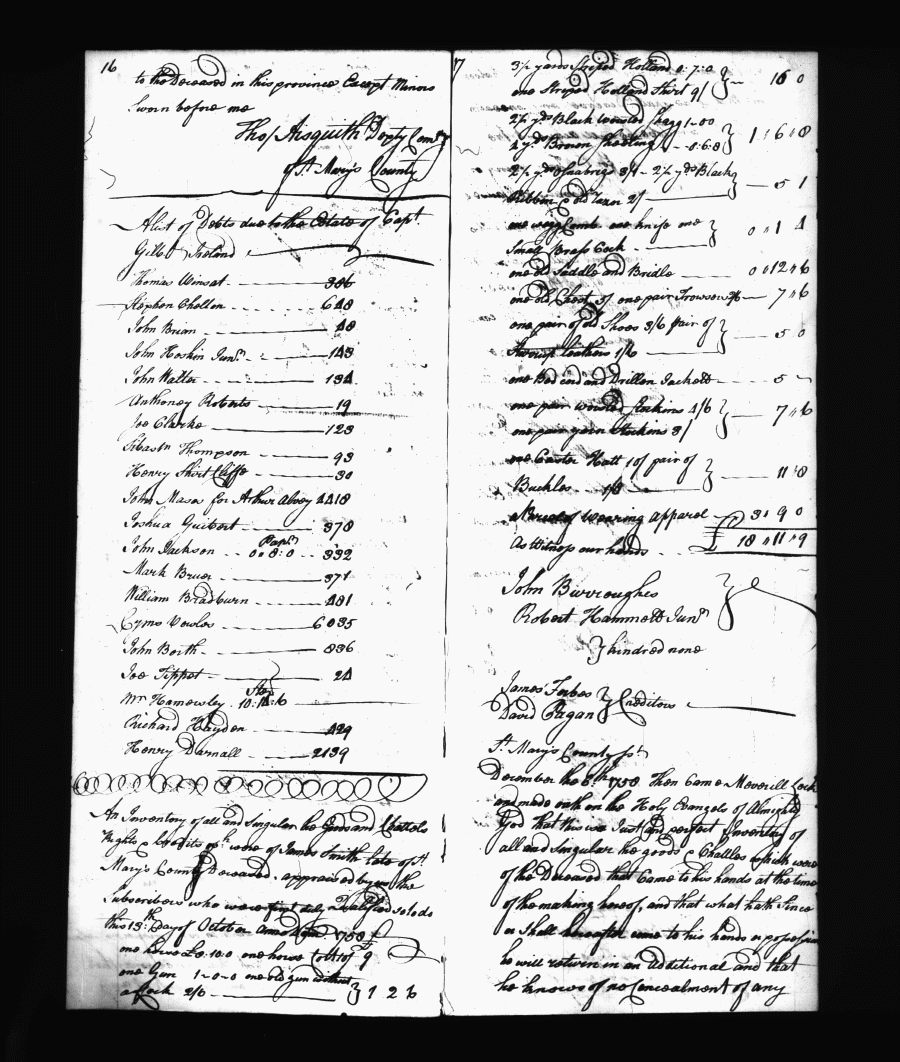 16
to the Deceased in this province Except Minors
Sworn before me
Thos Aisquith Depty Comsy
of St. Mary's County
A list of Debts due to the Estate of Capt.
Gilbt Ireland
Thomas Winsat 306
Stephen Chellon 648
John Brian 48
John Hoskin Junr. 143
John Walter 134
Anthoney Roberts 19
Joe Clarke 123
Thompson 93
Henry Shirtcliffe 30
John Mason for Arthur Alvey 4418
Joshua Guibert 378
John Jackson 0:8:0 332
Mark Bruer 371
William Bradburn 481
Cyrus Vowles 6035
John Borth 836
Joe Tippet 24
Mr Hamersley 10:14:6
Richard Hayden 429
Henry Darnall 2139
An Inventory of all and Singular the Goods and Chattels
Rights & Credits wch were of James Smith late of St.
Mary's County Deceased. appraised by us the
Subscribers who were first duly Qualified so to do
this 13th Day of October Anno Dom. 1758
one horse one horse
one Gun 1-0-0 one old gun without
a Lock 2/6 } 9 12 6
17
3 1/2 yards Striped Holland 0:7:0
one Striped Holland Shirt 9/ } 16 0
2 1/2 yds Black worsted Shagg 1-00
2 yds Brown Sheeting 0:6:8 } 1:6:8
2 1/2 yds Osnabrigs 3/4 - 2 1/2 yds Black
Ribbon & old Razor 2/ } 5 1
one comb one knife one
Small Brass Cock } 0:1 4
one old Saddle and Bridle 0:12:6
one old Chest 5/ one pair Trowsers 2/6 7:6
one pair of old Shoes 3/6 pair of
Stirrup leathers 1/6 } 5 0
one Bed and Drillen Jackett 5
one pair worsted Stockins 4/6
one pair yarn Stockins 3/ } 7:6
one Castor Hatt 10/ pair of
Buckles 1/8 } 11:8
A parcel of Wearing Apparel 3:9 0
As Witness our hands £18:11:9
John Burroughs
Robert Hammett Junr
} kindred none
James Forbes
David Pagan } Creditors
St. Mary's County sst
December the 6th 1758. Then Came Meverill Lock
and made oath on the Holy Evangels of Almighty
God that this is a Just and perfect Inventory of
all and Singular the goods & Chattles which were
of the Deceased that Came to his hands at the time
of the making hereof, and that what hath Since
or Shall hereafter come to his hands or possession
he will return in an Additional and that
he knows of no Concealment of any